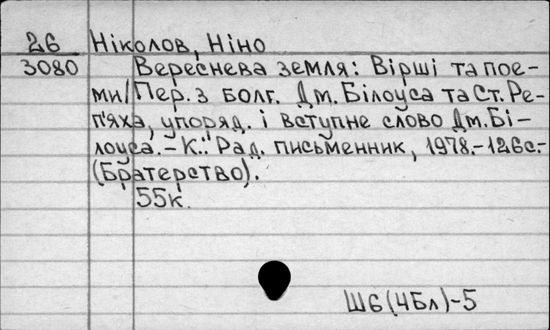 26 Ніколов, Ніно
3080 Вереснева земля: Вірші та пое-
ми/Пер. з болг. Дм. Білоуса та Ст. Ре-
п'яха, упоряд. і вступне слово Дм. Бі-
лоуса. – К.: Рад. письменник, 1978.- 126с.-
(Братерство).
55к.
Ш6(4Бл)-5